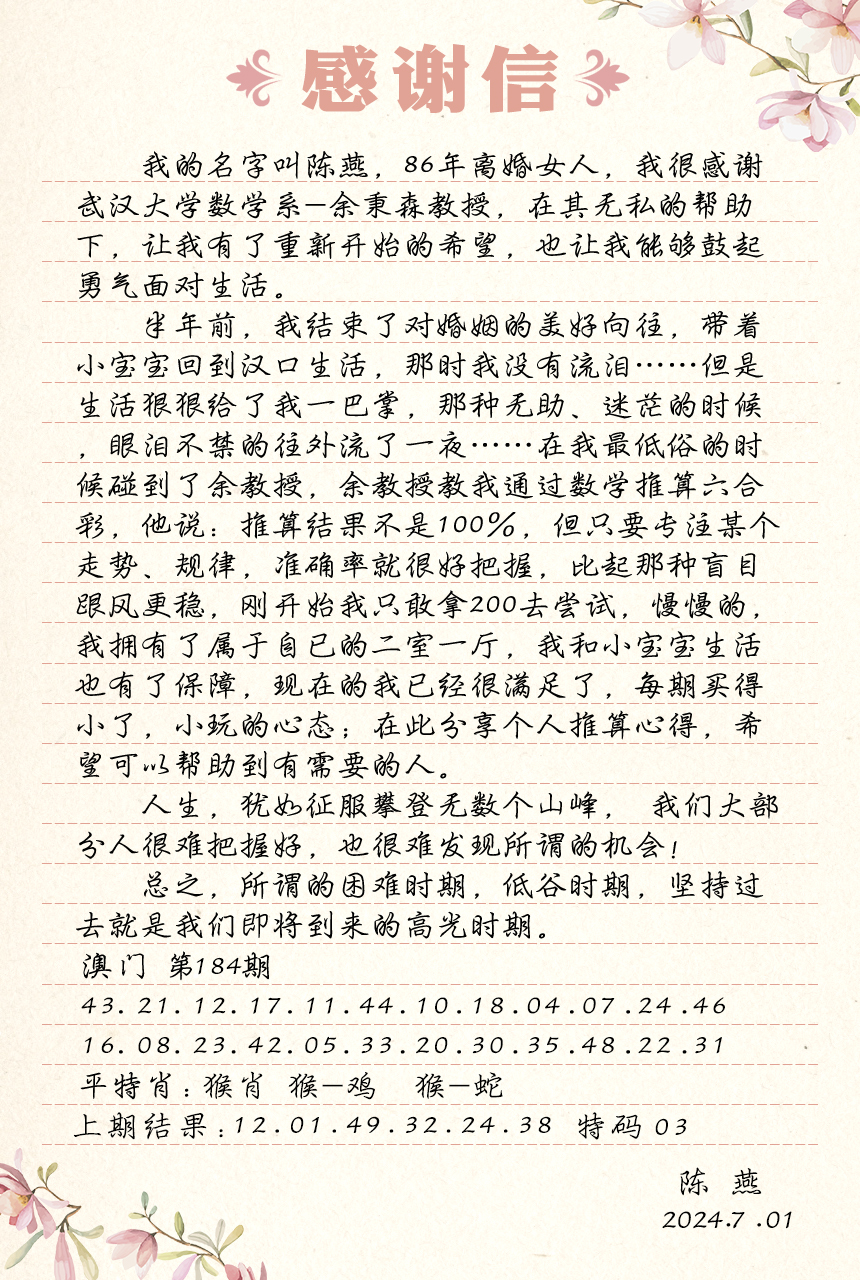 感谢信
我的名字叫陈燕，86年离婚女人，我很感谢
武汉大学数学系—余秉森教授，在其无私的帮助
下，让我有了重新开始的希望，也让我能够鼓起
勇气面对生活。
半年前，我结束了对婚姻的美好向往，带着
小宝宝回到汉口生活，那时我没有流泪……但是
生活狠狠给了我一巴掌，那种无助、迷茫的时候
，眼泪不禁的往外流了一夜……在我最低俗的时
候碰到了余教授，余教授教我通过数学推算六合
彩，他说：推算结果不是100%，但只要专注某个
走势、规律，准确率就很好把握，比起那种盲目
跟风更稳，刚开始我只敢拿200去尝试，慢慢的，
我拥有了属于自已的二室一厅，我和小宝宝生活
也有了保障，现在的我已经很满足了，每期买得
小了，小玩的心态；在此分享个人推算心得，希
望可以帮助到有需要的人。
人生，犹如征服攀登无数个山峰， 我们大部
分人很难把握好，也很难发现所谓的机会！
总之，所谓的困难时期，低谷时期，坚持过
去就是我们即将到来的高光时期。
澳门 第184期
43.21.12.17.11.44.10.18.04.07.24.46
16.08.23.42.05.33.20.30.35.48.22.31
平特肖：猴肖 猴—鸡 猴—蛇
上期结果：12.01.49.32.24.38 特码 03
陈 燕
2024.7.01